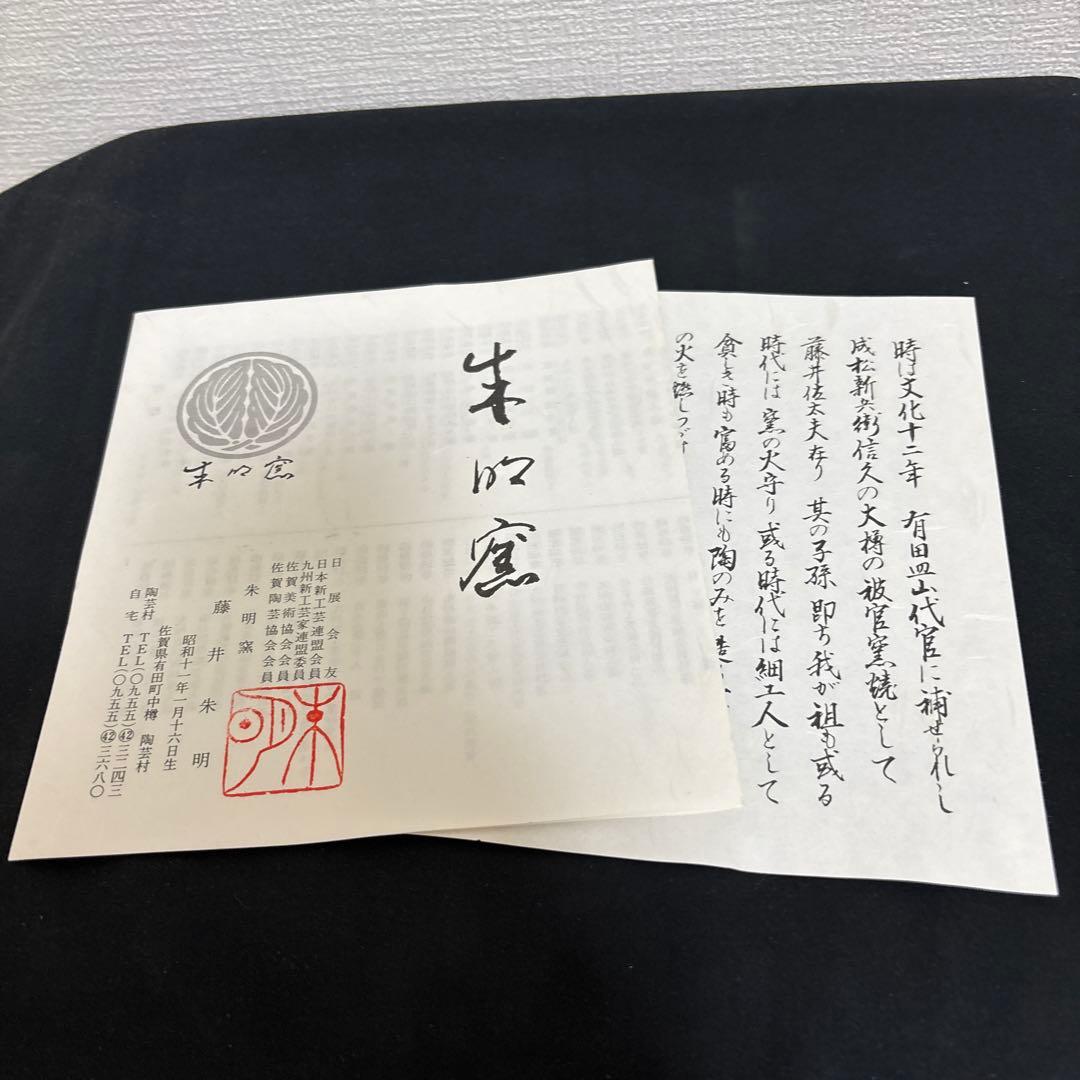 朱明窯
朱明窯
日展会友
日本新工芸連盟会員
九州新工芸家連盟委員
佐賀美術協会会員
佐賀陶芸協会会員
朱明窯
藤井朱明
昭和十一年一月十六日生
佐賀県有田町中樽 陶芸村
陶芸村 TEL(〇九五五)㊷三二四三
自宅 TEL(〇九五五)㊷三六八〇
朱明
時は文化十二年 有田皿山代官に補せられし
成松新兵衛信久の大樽の被官窯焼として
藤井佐太夫在り 其の子孫 即ち我が祖も或る
時代には窯の火守り或る時代には細工人として
貧しき時も富める時にも陶のみを
の火を燃しつづけ